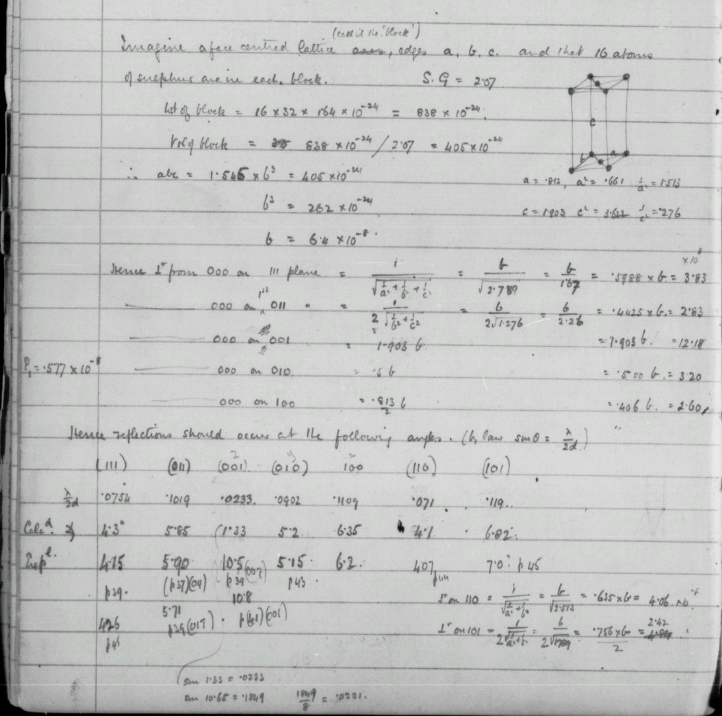 (call it the 'block')
Imagine a face centred lattice edges a, b, c. and that 16 atoms
of sulphur are in each block. S.G = 2.07
Wt of block = 16 × 32 × 1.64 × 10^-24 = 838 × 10^-24.
Vol of block = 838 × 10^-24 / 2.07 = 405 × 10^-24
∴ abc = 1.545 × b³ = 405 × 10^-24
a = .812, a² = .661 1/a² = 1.513
b³ = 262 × 10^-24
c = 1.903 c² = 3.622 1/c² = .276
b = 6.4 × 10^-8.
Hence ⊥r from 000 on 111 plane = 1/√(1/a² + 1/b² + 1/c²) = b/√2.789 = b/1.67 = .5988 × b = 3.83 × 10^-8
000 on 011 " = 1/2√(1/b² + 1/c²) = b/2√1.276 = b/2.26 = .4425 × b = 2.83
000 on 001 = 1.903 b = 1.903 b. = 12.18
P₁ = .577 × 10^-8
000 on 010 = .5 b = .500 b. = 3.20
000 on 100 = .813/2 b = .406 b. = 2.60
Hence reflections should occur at the following angles. (by law sin θ = λ/2d)
(111) (011) (001) (010) 100 (110) (101)
λ/2d .0754 .1019 .0233. .0902 .1109 .071 .119.
Calcd. 4.3° 5.85 1.33 5.2 6.35 4.1 6.82.
Expl. 4.15 5.90 10.5 (002) 5.15 6.2. 4.07 7.0° p 45
p 29. (p 27) (04) p 39 p 43
10.8
⊥r on 110 = 1/√(1/a² + 1/b²) = b/√2.513 = .635 × b = 4.06
4.26 5.71 p 25 (017). p (61) (01)
p 45
⊥r on 101 = b/2√1.789 = .756 × b/2 = 2.42
sin 1.33 = .0233
sin 10.65 = .1849 .1849/8 = .0231.